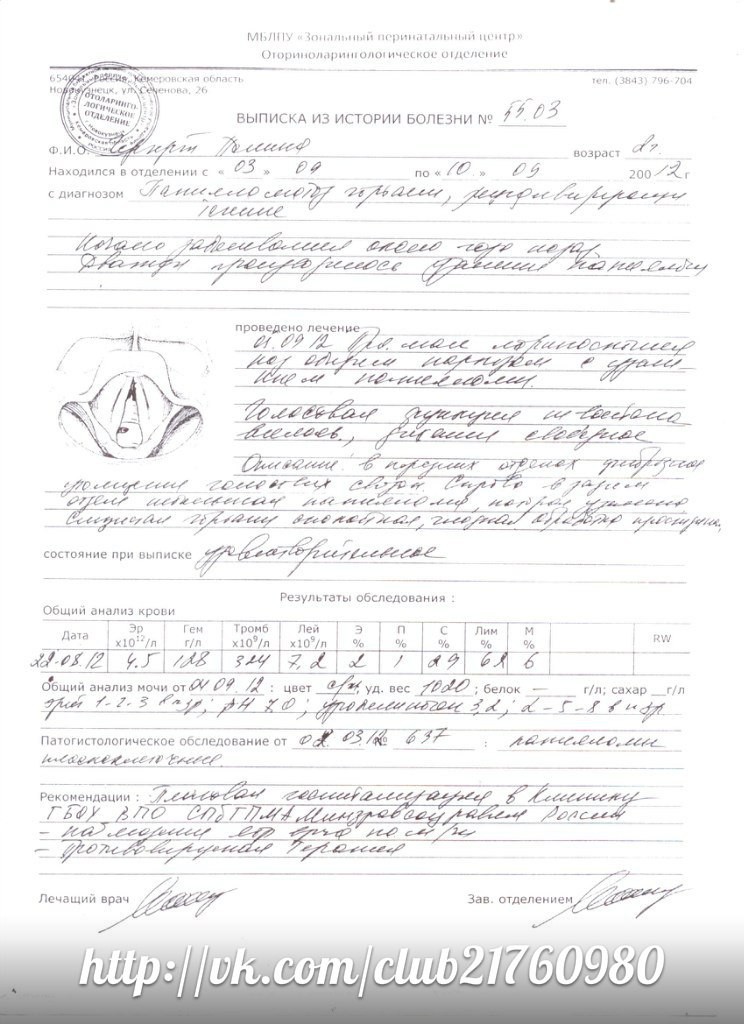 МБЛПУ «Зональный перинатальный центр»
Оториноларингологическое отделение
Россия, Кемеровская область
Новокузнецк, ул. Сеченова, 26
тел. (3843) 796-704
ОТОЛАРИНГО-
ЛОГИЧЕСКОЕ
ОТДЕЛЕНИЕ
ВЫПИСКА ИЗ ИСТОРИИ БОЛЕЗНИ № 55.03
Ф.И.О. Полина возраст 2г.
Находился в отделении с « 03 » 09 по « 10 » 09 20012г
с диагнозом Папилломатоз гортани, рецидивирующее
течение
Начало заболевания около года назад
Дважды производилось удаление папиллом
проведено лечение
09 12 Прямая ларингоскопия
под общим наркозом с удале-
нием папилломы.
Голосовая функция не восстано
вилась, дыхание свободное
Описание: в передних отделах фиброзное
утолщение голосовых связок. Справа в заднем
отделе небольшая папиллома, которая удалена
Слизистая гортани спокойная, гладкая
состояние при выписке удовлетворительное
Результаты обследования :
Общий анализ крови
Дата Эр х10¹²/л Гем г/л Тромб х10⁹/л Лей х10⁹/л Э % П % С % Лим % М % RW
22.08.12 4.5 128 324 7,2 2 1 29 62 6
Общий анализ мочи от 04 09. 12 : цвет с/ж, уд. вес 1020 ; белок — г/л; сахар г/л
1-2-3 в п/зр; pH 7,0 ; уробилиноген 3,2 ; L – 5-8 в п/зр
Патогистологическое обследование от 02 03.12 № 637 : папиллома
плоскоклеточная
Рекомендации : Плановая госпитализация в Клинику
ГБОУ ВПО СПбГПМА Минздравсоцразвития России
– наблюдение лор врача по м/ж
– противовирусная терапия
Лечащий врач
Зав. отделением
http://vk.com/club21760980